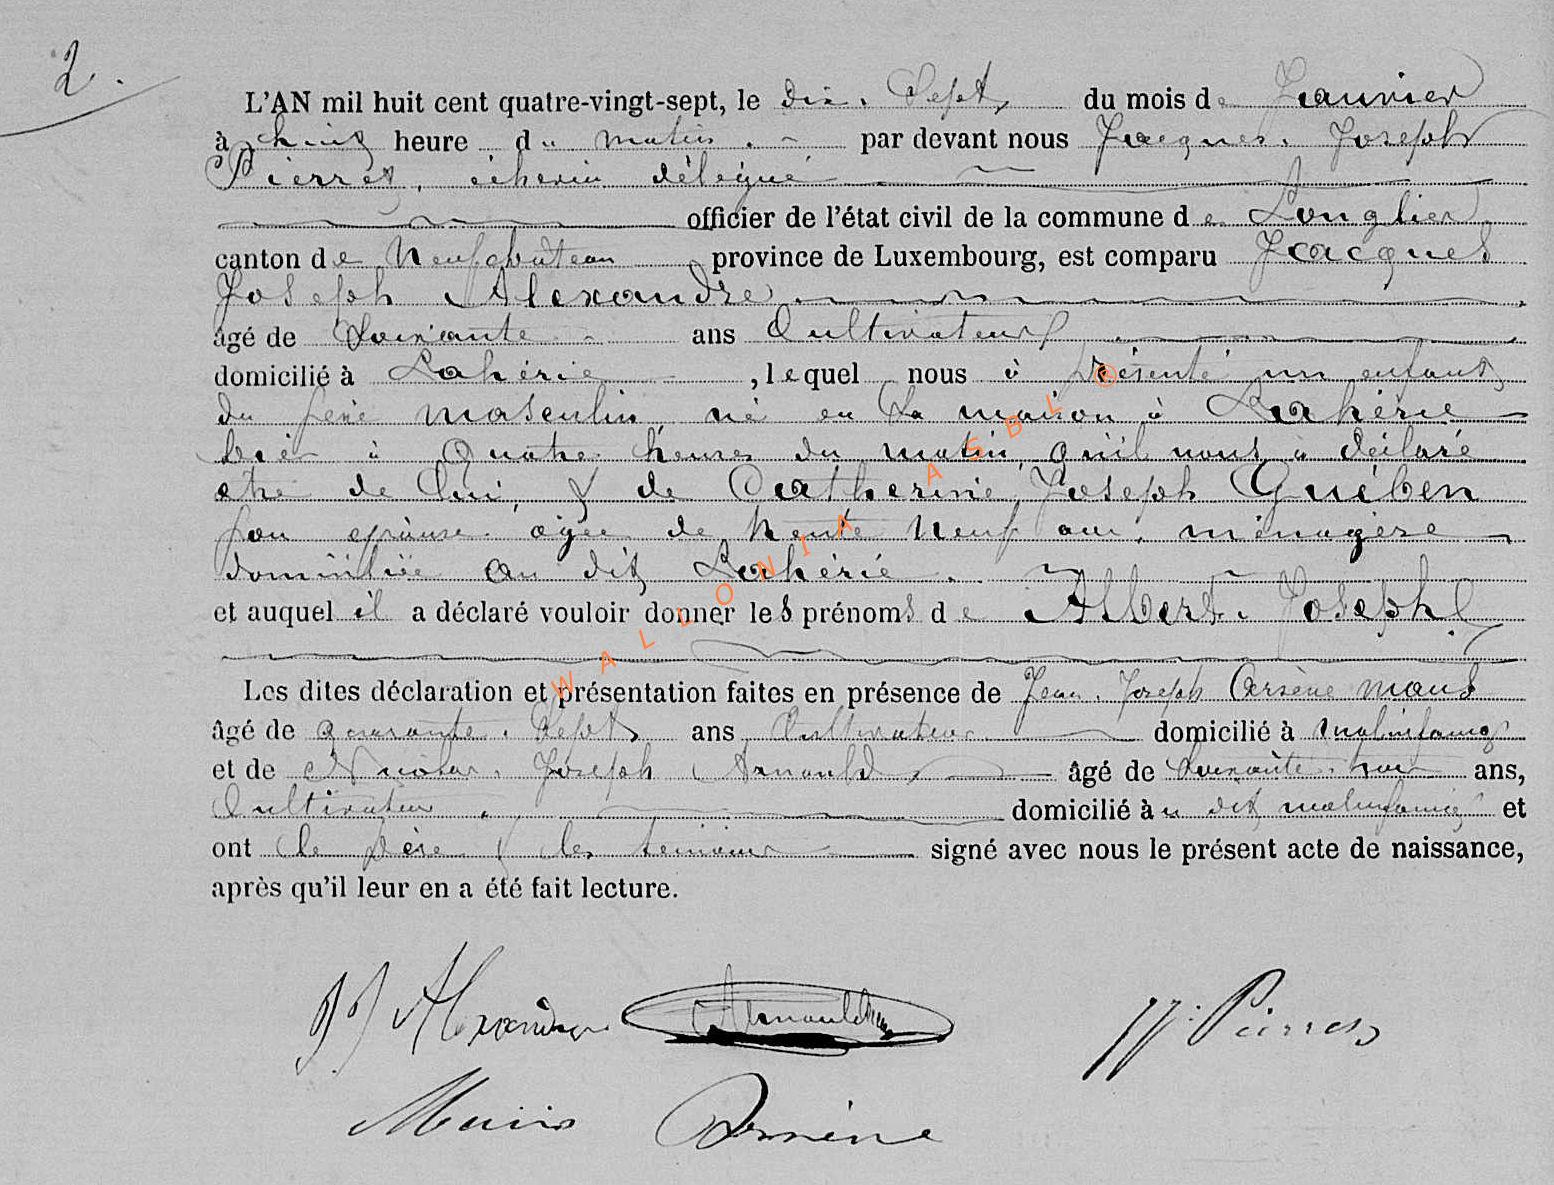 2.
L'AN mil huit cent quatre-vingt-sept, le dix. Sept du mois de Janvier
à huit heure du matin. par devant nous Jacques. Joseph
Pierret, échevin délégué
officier de l'état civil de la commune de Longlier
canton de Neufchateau province de Luxembourg, est comparu Jacques
Joseph Alexandre
âgé de Soixante ans Cultivateur
domicilié à Lahérie, lequel nous à présenté un enfant
du sexe masculin, né en Sa maison à Lahérie
hier à Quatre heures du matin, qu'il nous à déclaré
etre de lui & de Catherine Joseph Guében
son epouse âgée de trente neuf ans, ménagère
domiciliée au dit Lahérie.
et auquel il a déclaré vouloir donner les prénoms de Albert. Joseph
Les dites déclaration et présentation faites en présence de Jean. Joseph Arsène Maus
âgé de quarante. Sept ans Cultivateur domicilié à Molinfaing
et de Nicolas. Joseph Arnould âgé de Soixante. trois ans,
Cultivateur domicilié àu dit molinfaing et
ont le père & les temoins signé avec nous le présent acte de naissance,
après qu'il leur en a été fait lecture.
JJ Alexandre Arnould JJ. Pierret
Maus Arsène
WALLONIA ASBL ®